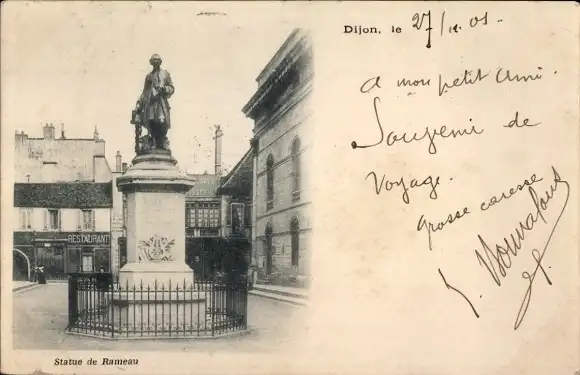 Dijon, le 27/11.01.
A mon petit Ami.
Souvenir de
Voyage.
Grosse caresse
RESTAURANT
Statue de Rameau